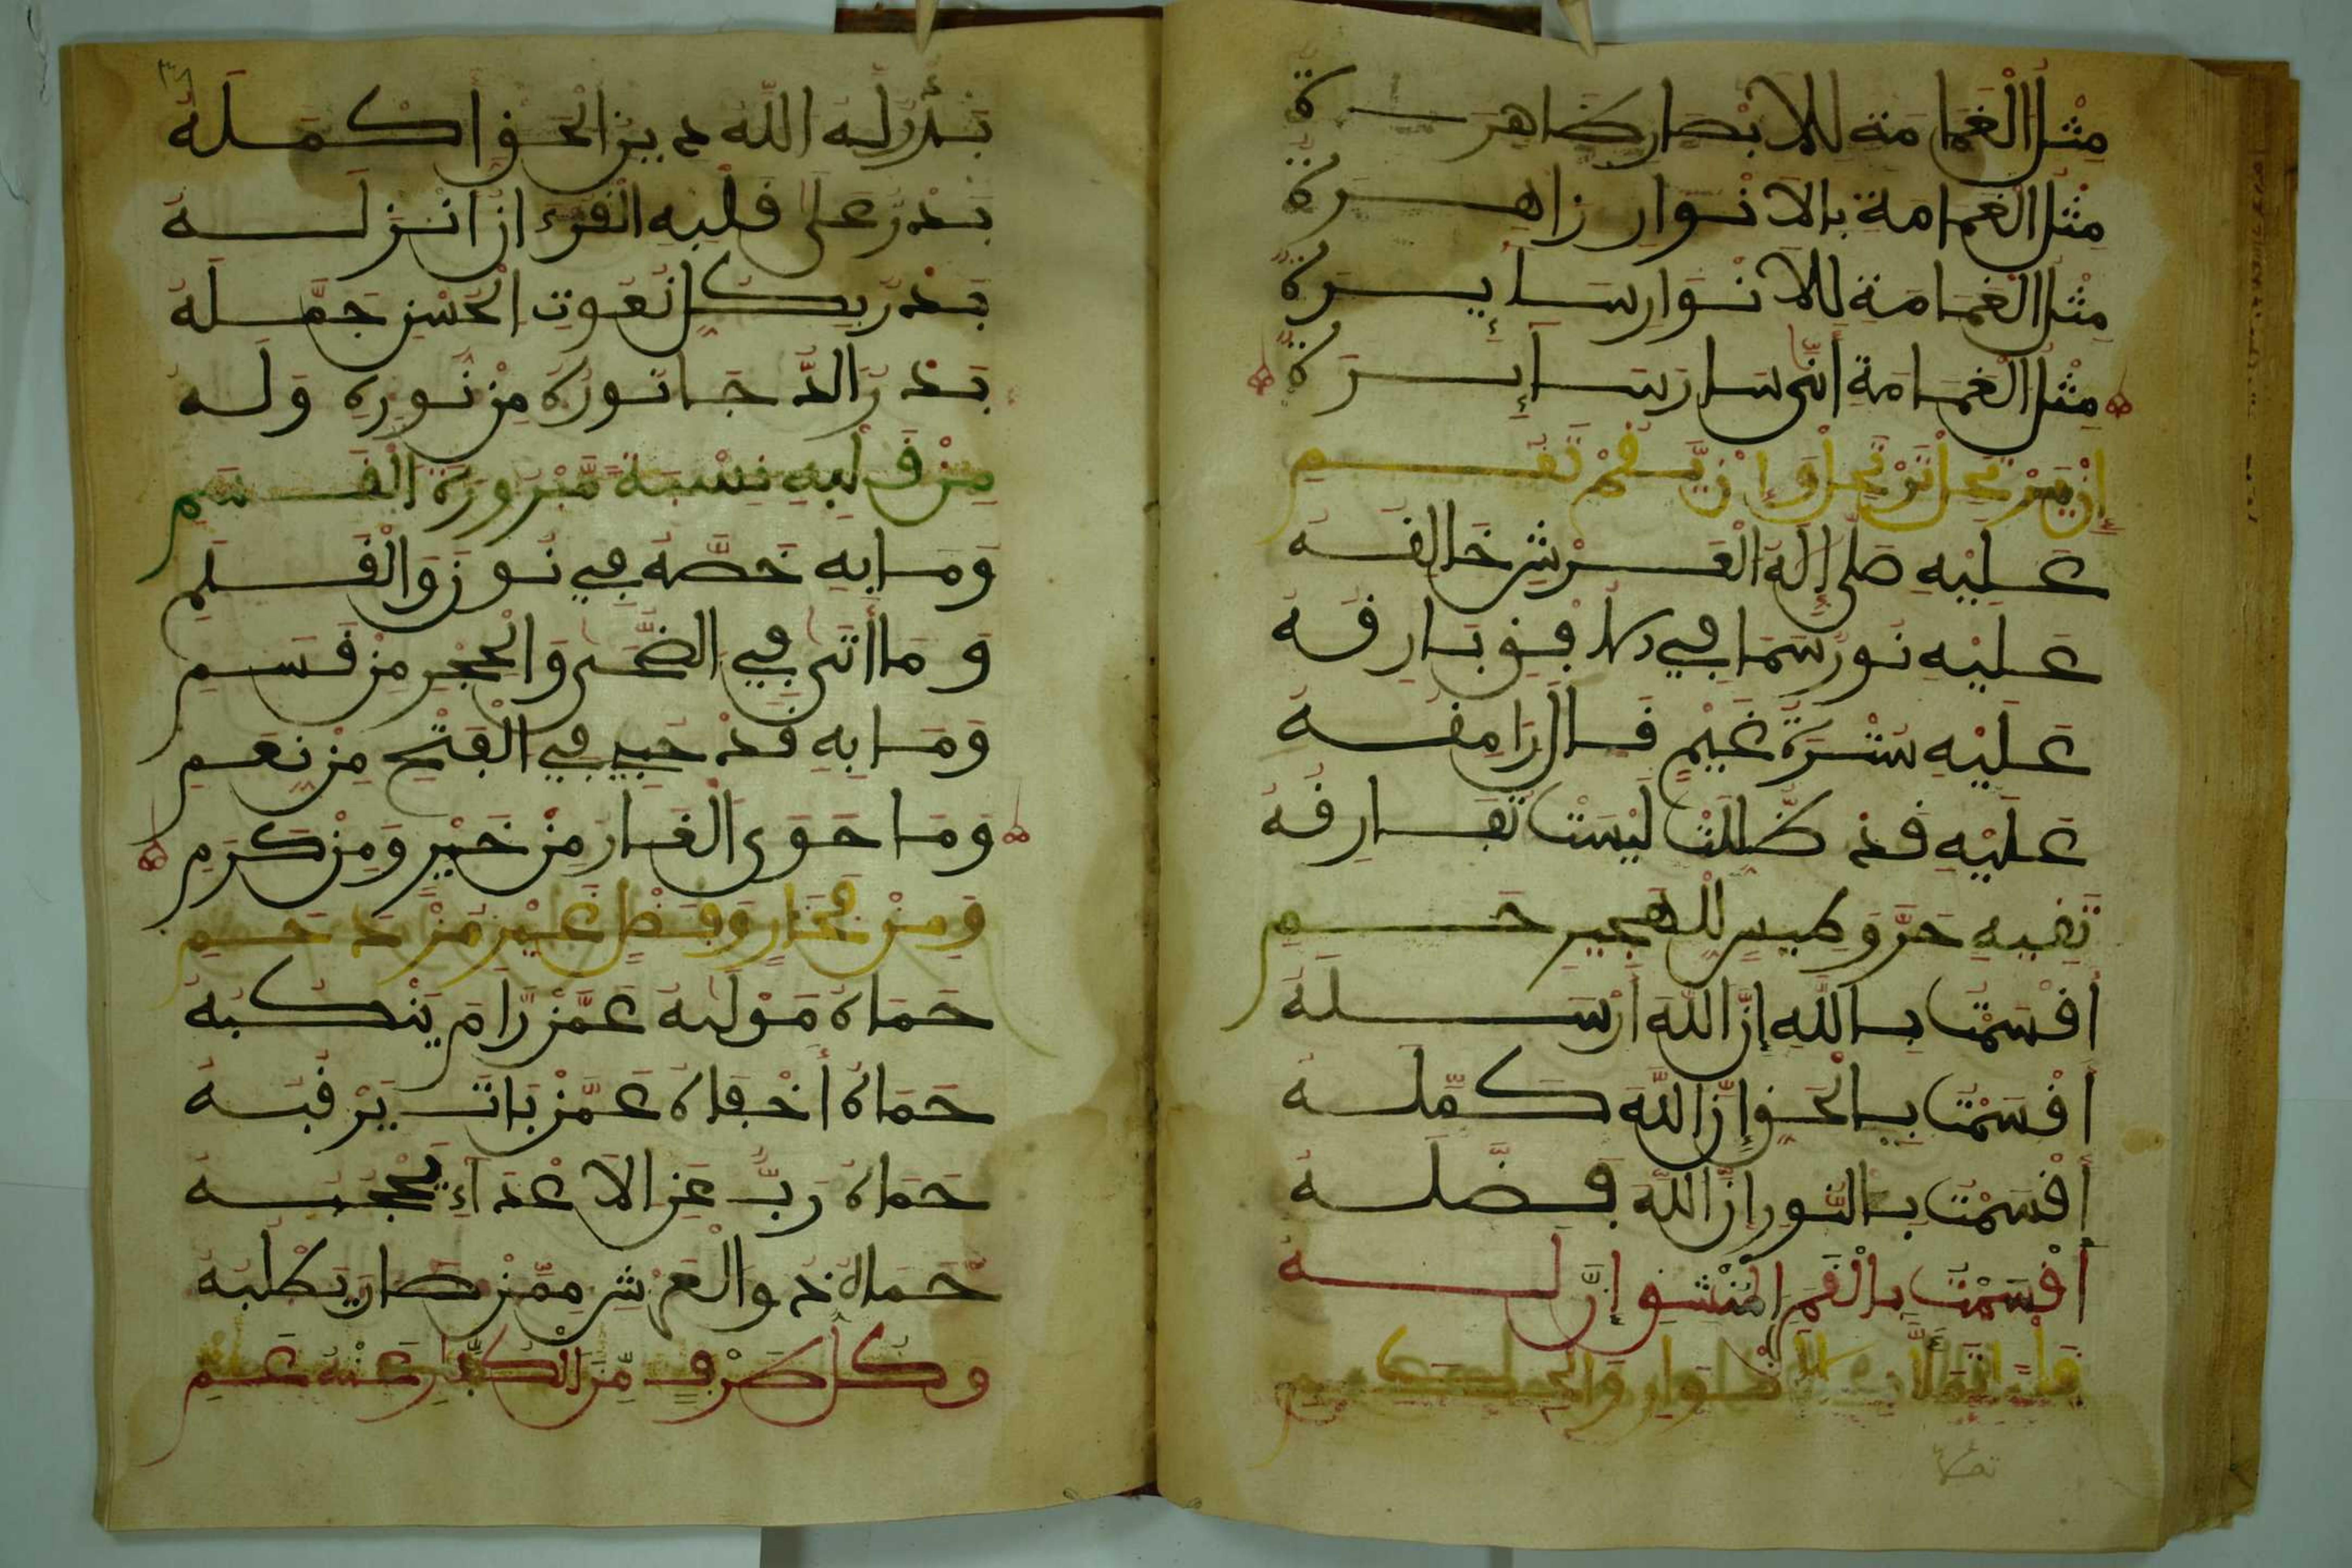 مِثْلَ الْغَمَامَةِ لِلْأَبْصَارِ ظَاهِرَة
مِثْلَ الْغَمَامَةِ بِالْأَنْوَارِ زَاهِرَة
مِثْلَ الْغَمَامَةِ لِلْأَنْوَارِ سَايِرَة
مِثْلَ الْغَمَامَةِ أَنَّى سَارَ سَائِرَة
وَإِنْ يَّقُمْ تَقُمِ
عَلَيْهِ صَلَّى إِلَهُ الْعَرْشِ خَالِقُهُ
عَلَيْهِ نُورٌ سَمَا فِي بَارِقُهُ
عَلَيْهِ سَتْرَةُ غَيْمٍ قَالَ رَامِقُهُ
عَلَيْهِ قَدْ ظَلَّلَتْ لَيْسَتْ تُفَارِقُهُ
تَقِيهِ حَرَّ وَطِيسٍ لِلْهَجِيرِ حَمِ
أَقْسَمْتُ بِاللَّهِ إِنَّ اللَّهَ أَرْسَلَهُ
أَقْسَمْتُ بِالْحَقِّ إِنَّ اللَّهَ كَمَّلَهُ
أَقْسَمْتُ بِالنُّورِ إِنَّ اللَّهَ فَضَّلَهُ
أَقْسَمْتُ بِالْقَمَرِ الْمُنْشَقِّ إِنَّ لَهُ
قَلْباً بِالْأَنْوَارِ وَالْحِكَمِ
بَدْرٌ لَهُ اللَّهُ دِينَ الْحَقِّ أَكْمَلَهُ
بَدْرٌ عَلَى قَلْبِهِ الْقُرْءَانَ أَنْزَلَهُ
بَدْرٌ بِكُلِّ نُعُوتِ الْحُسْنِ جَمَّلَهُ
بَدْرُ الدُّجَا نُورُهُ مِنْ نُورِهِ وَلَهُ
مِنْ قَلْبِهِ نِسْبَةً مَّبْرُورَةَ الْقَسَمِ
وَمَا بِهِ خَصَّهُ فِي نُونَ وَالْقَلَمِ
وَمَا أَتَى فِي الضُّحَى وَالْحِجْرِ مِنْ قَسَمِ
وَمَا بِهِ قَدْ حُبِي فِي الْفَتْحِ مِنْ نِعَمِ
وَمَا حَوَى الْغَارُ مِنْ خَيْرٍ وَمِنْ كَرَمِ
وَمِنْ فَخَارٍ وَفَضْلٍ غَيْرِ مُزْدَحَمِ
حَمَاهُ مَوْلَاهُ عَمَّنْ رَّامَ يَنْكُبُهُ
حَمَاهُ أَخْفَاهُ عَمَّنْ بَاتَ يَرْقُبُهُ
حَمَاهُ رَبٌّ عَنِ الْأَعْدَاءِ يَحْجُبُهُ
حَمَاهُ ذُو الْعَرْشِ مِمَّنْ صَارَ يَطْلُبُهُ
وَكُلُّ طَرْفٍ مِّنَ الْكُفَّارِ عَنْهُ عَمِ